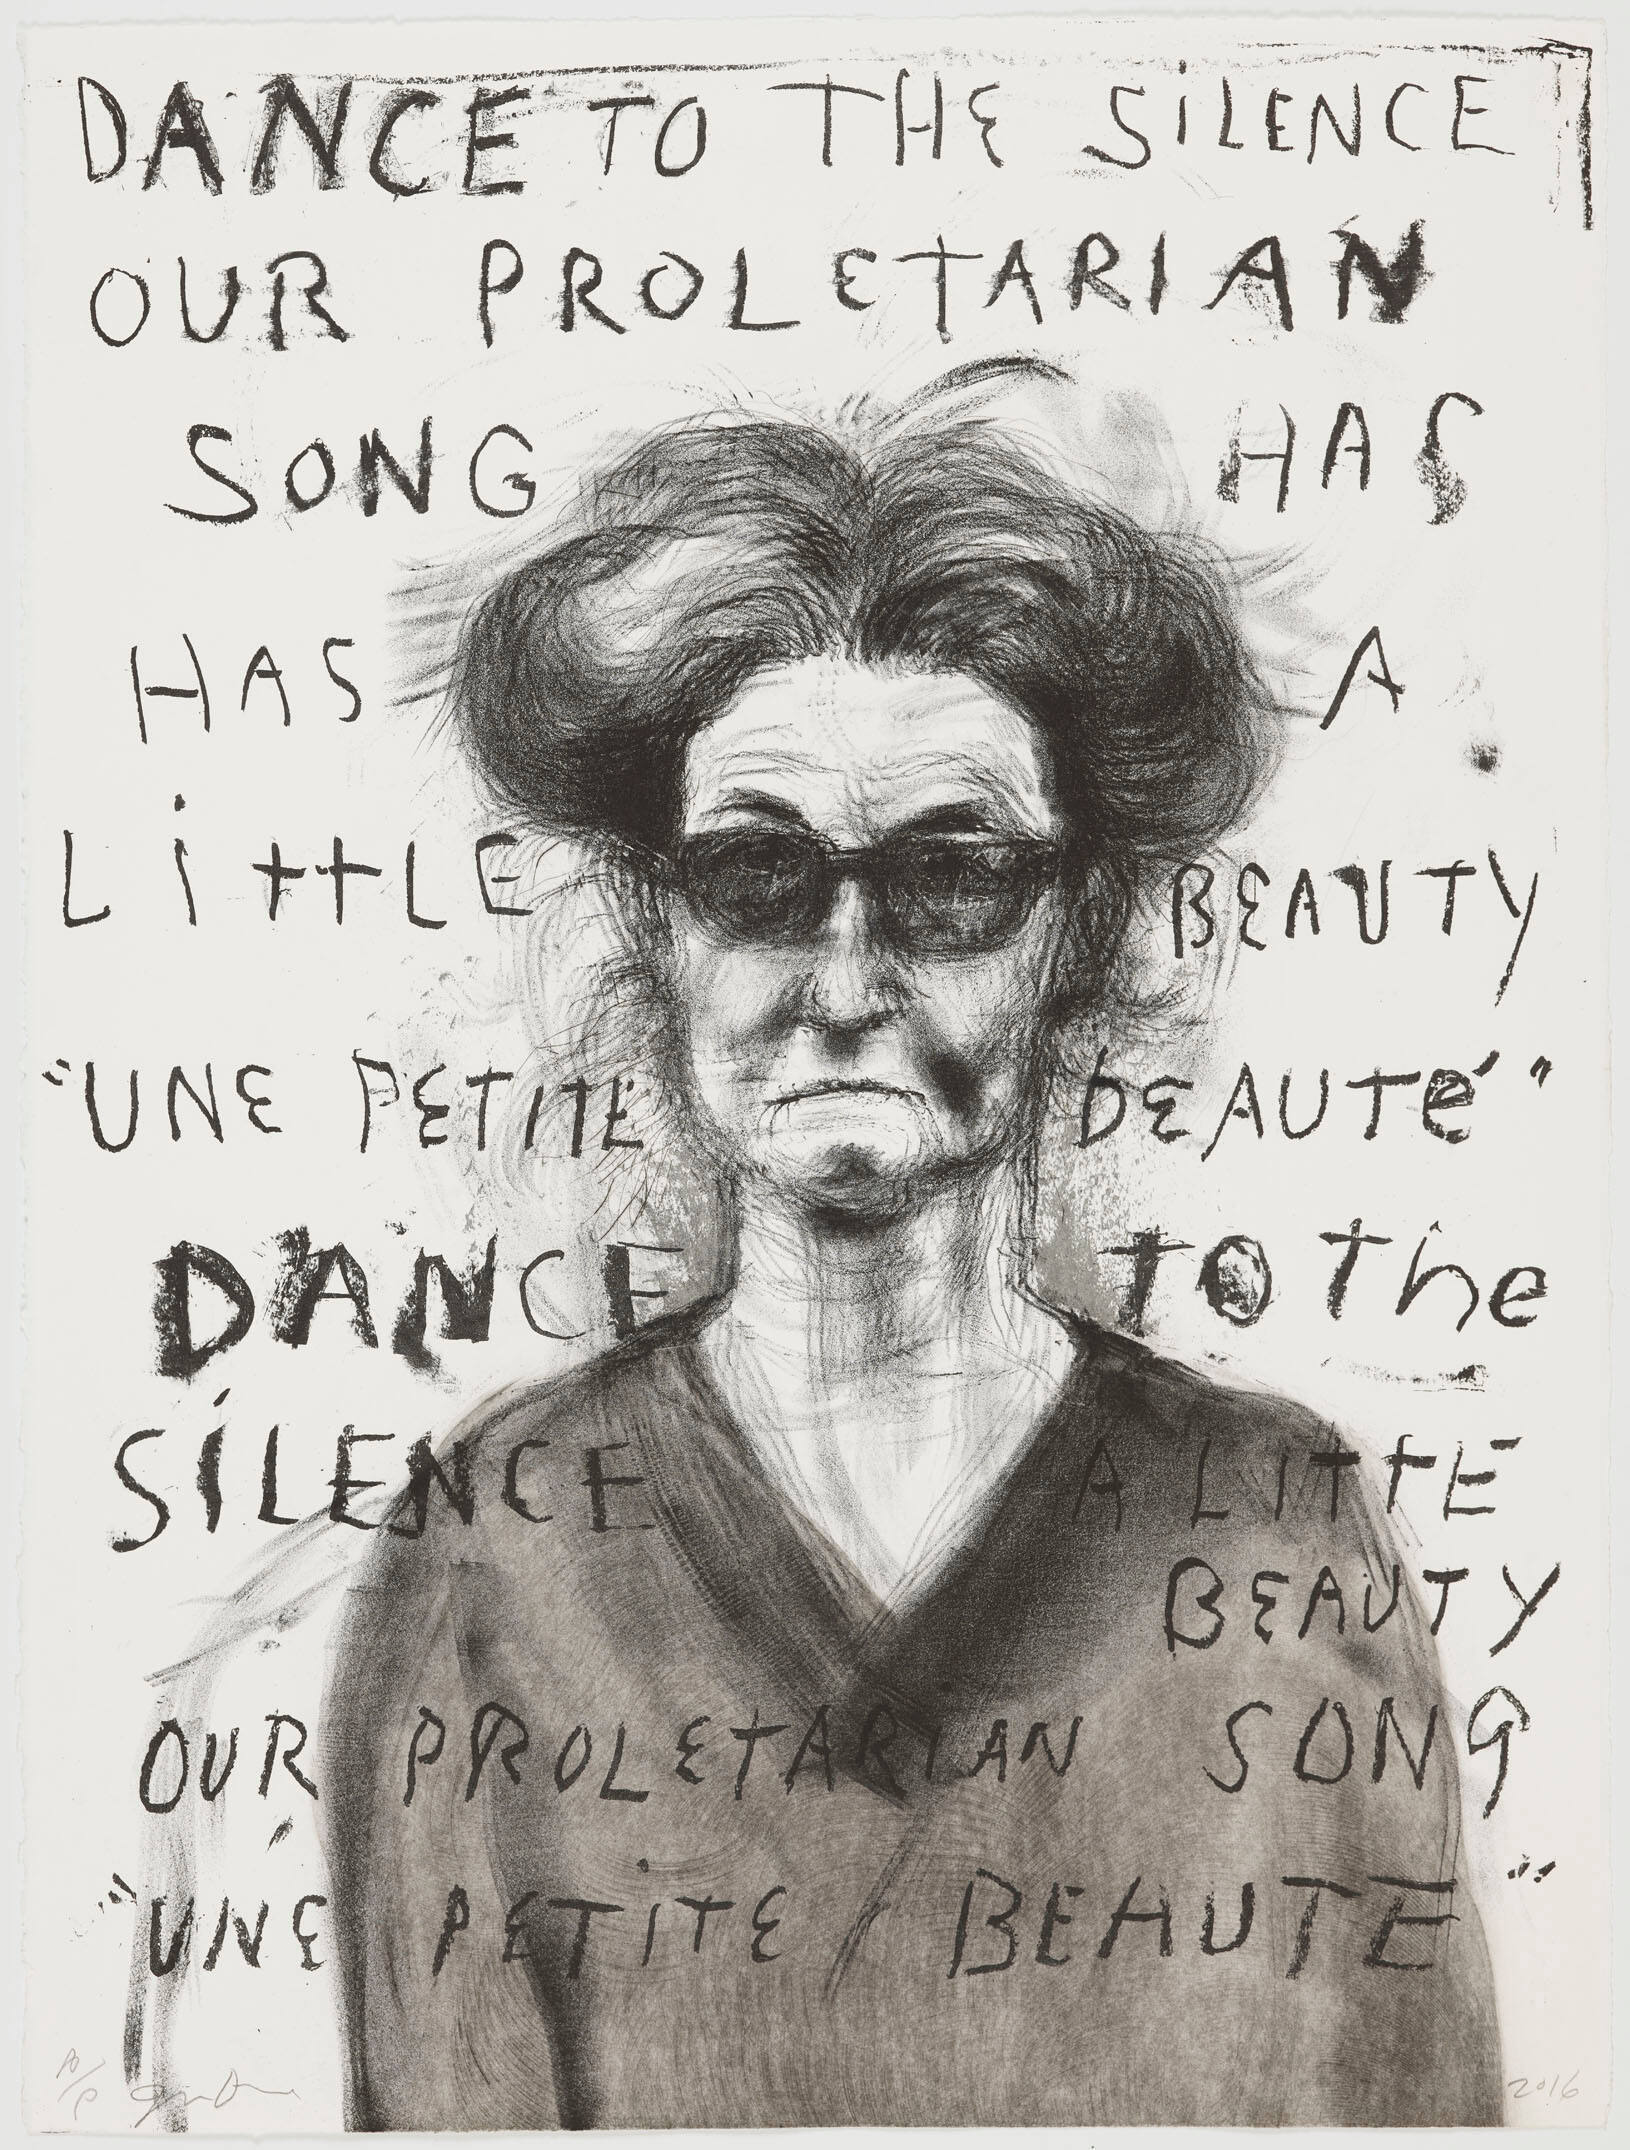 DANCE TO THE SILENCE
OUR PROLETARIAN
SONG HAS
HAS A
LittLE BEAUTY
"UNE PETITE bEAUTé"
DANCE TO The
SiLENCE A LITTE
BEAUTY
OUR PROLETARIAN SONG
"UNE PETiTE BEAUTE"
A/P
2016